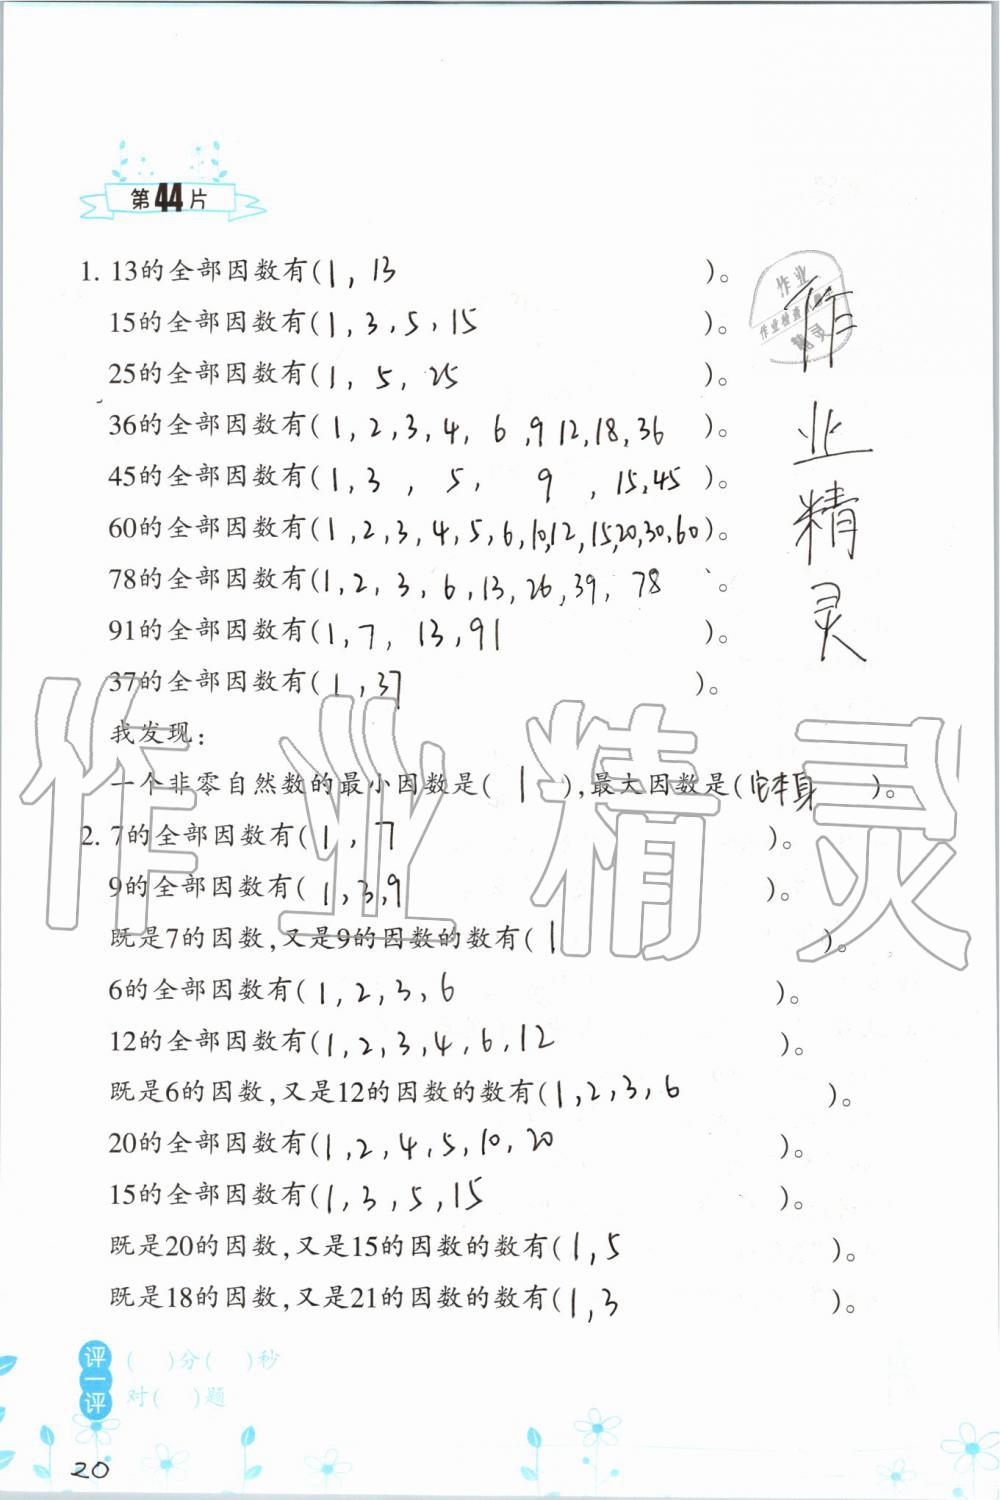 第44片
1. 13的全部因数有(1, 13)。
15的全部因数有(1, 3, 5, 15)。
25的全部因数有(1, 5, 25)。
36的全部因数有(1, 2, 3, 4, 6, 9 12, 18, 36)。
45的全部因数有(1, 3, 5, 9, 15, 45)。
60的全部因数有(1, 2, 3, 4, 5, 6, 10, 12, 15, 20, 30, 60)。
78的全部因数有(1, 2, 3, 6, 13, 26, 39, 78 。
91的全部因数有(1, 7, 13, 91)。
37的全部因数有(1, 37)。
我发现:
一个非零自然数的最小因数是(1),最大因数是(它本身)。
2. 7的全部因数有(1, 7)。
9的全部因数有(1, 3, 9)。
既是7的因数,又是9的因数的数有(1)。
6的全部因数有(1, 2, 3, 6)。
12的全部因数有(1, 2, 3, 4, 6, 12)。
既是6的因数,又是12的因数的数有(1, 2, 3, 6)。
20的全部因数有(1, 2, 4, 5, 10, 20)。
15的全部因数有(1, 3, 5, 15)。
既是20的因数,又是15的因数的数有(1, 5)。
既是18的因数,又是21的因数的数有(1, 3)。
评一评
( )分( )秒
对( )题
20
作业
作业检查
精灵
作业精灵
作业精灵